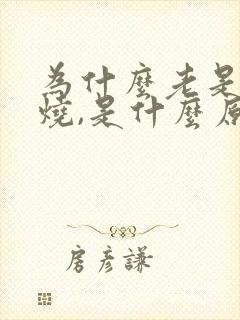 為什麼老是
燒,是什麼原
房彥謙